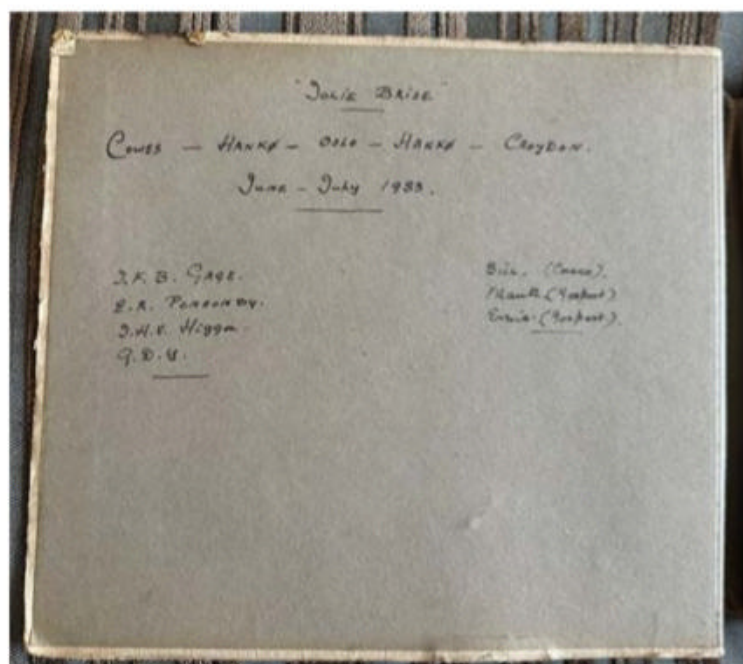 "Jolie Brise"
Cowes — Hankø — Oslo — Hankø — Croydon.
June - July 1933.
J.K.B. Gage.
E.A. Ponsonby.
J.H.V. Higgon.
G.D.Y.
Bill. (Cowes).
(Gosport)
Ernie. (Gosport).